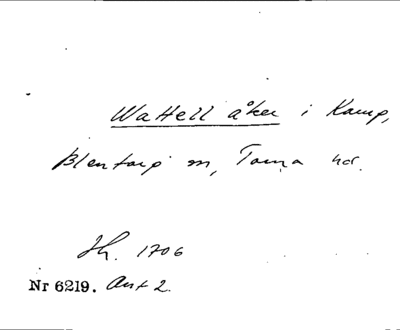 Wattell åker i Kamp,
Blentarp sn, Torna hd.
Jh. 1706
Nr 6219. Ant 2.